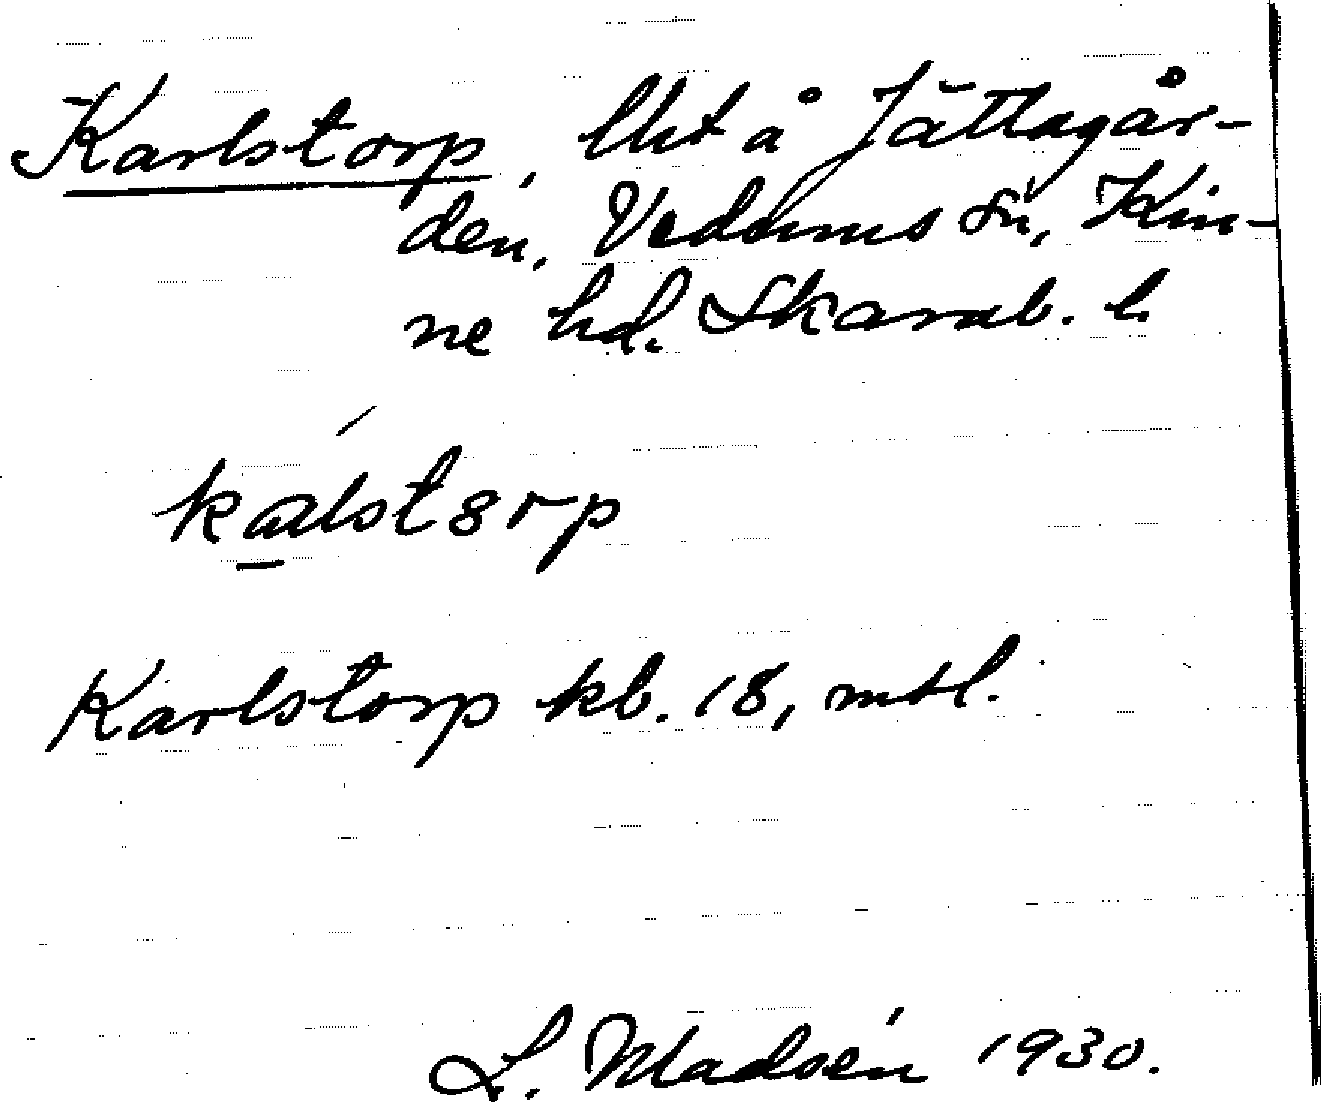 Karlstorp, lht å Jättagår-
den, Vedums sn, Kin-
ne hd. Skarab. l.
kalstorp
Karlstorp kb. 18, mtl.
L. Madsén 1930.